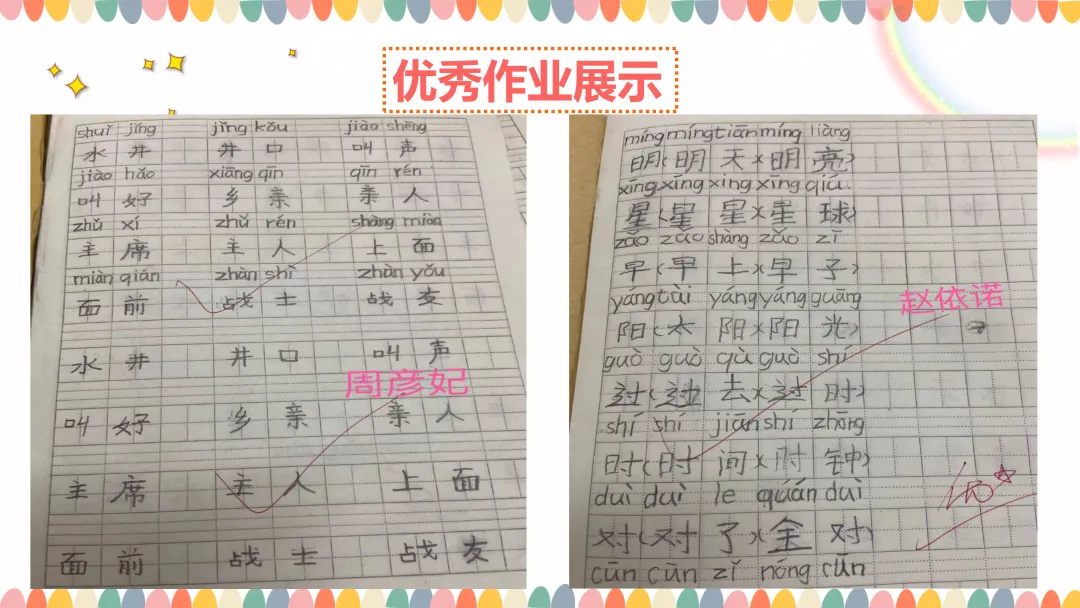 优秀作业展示
shuǐ jǐng jǐng kǒu jiào shēng
水 井 井 口 叫 声
jiào hǎo xiāng qīn qīn rén
叫 好 乡 亲 亲 人
zhǔ xí zhǔ rén shàng miàn
主 席 主 人 上 面
miàn qián zhàn shì zhàn yǒu
面 前 战 士 战 友
水 井 井 口 叫 声
周彦妃
叫 好 乡 亲 亲 人
主 席 主 人 上 面
面 前 战 士 战 友
míng míng tiān míng liàng
明(明 天)(明 亮)
xīng xīng xing xīng qiú
星(星 星)(星 球)
zǎo zǎo shàng zǎo zǐ
早(早 上)(早 子)
yáng tài yáng yáng guāng
阳(太 阳)(阳 光)
赵依诺
guò guò qù guò shí
过(过 去)(过 时)
shí shí jiān shí zhōng
时(时 间)(时 钟)
duì duì le quán duì
对(对 了)(全 对)
100
cūn cūn zǐ nóng cūn